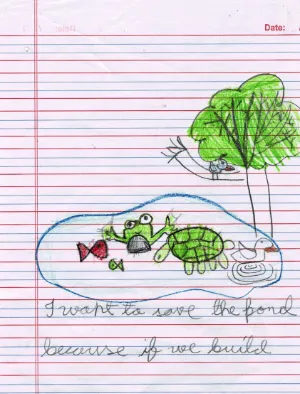 Date:
I want to save the pond
because if we build